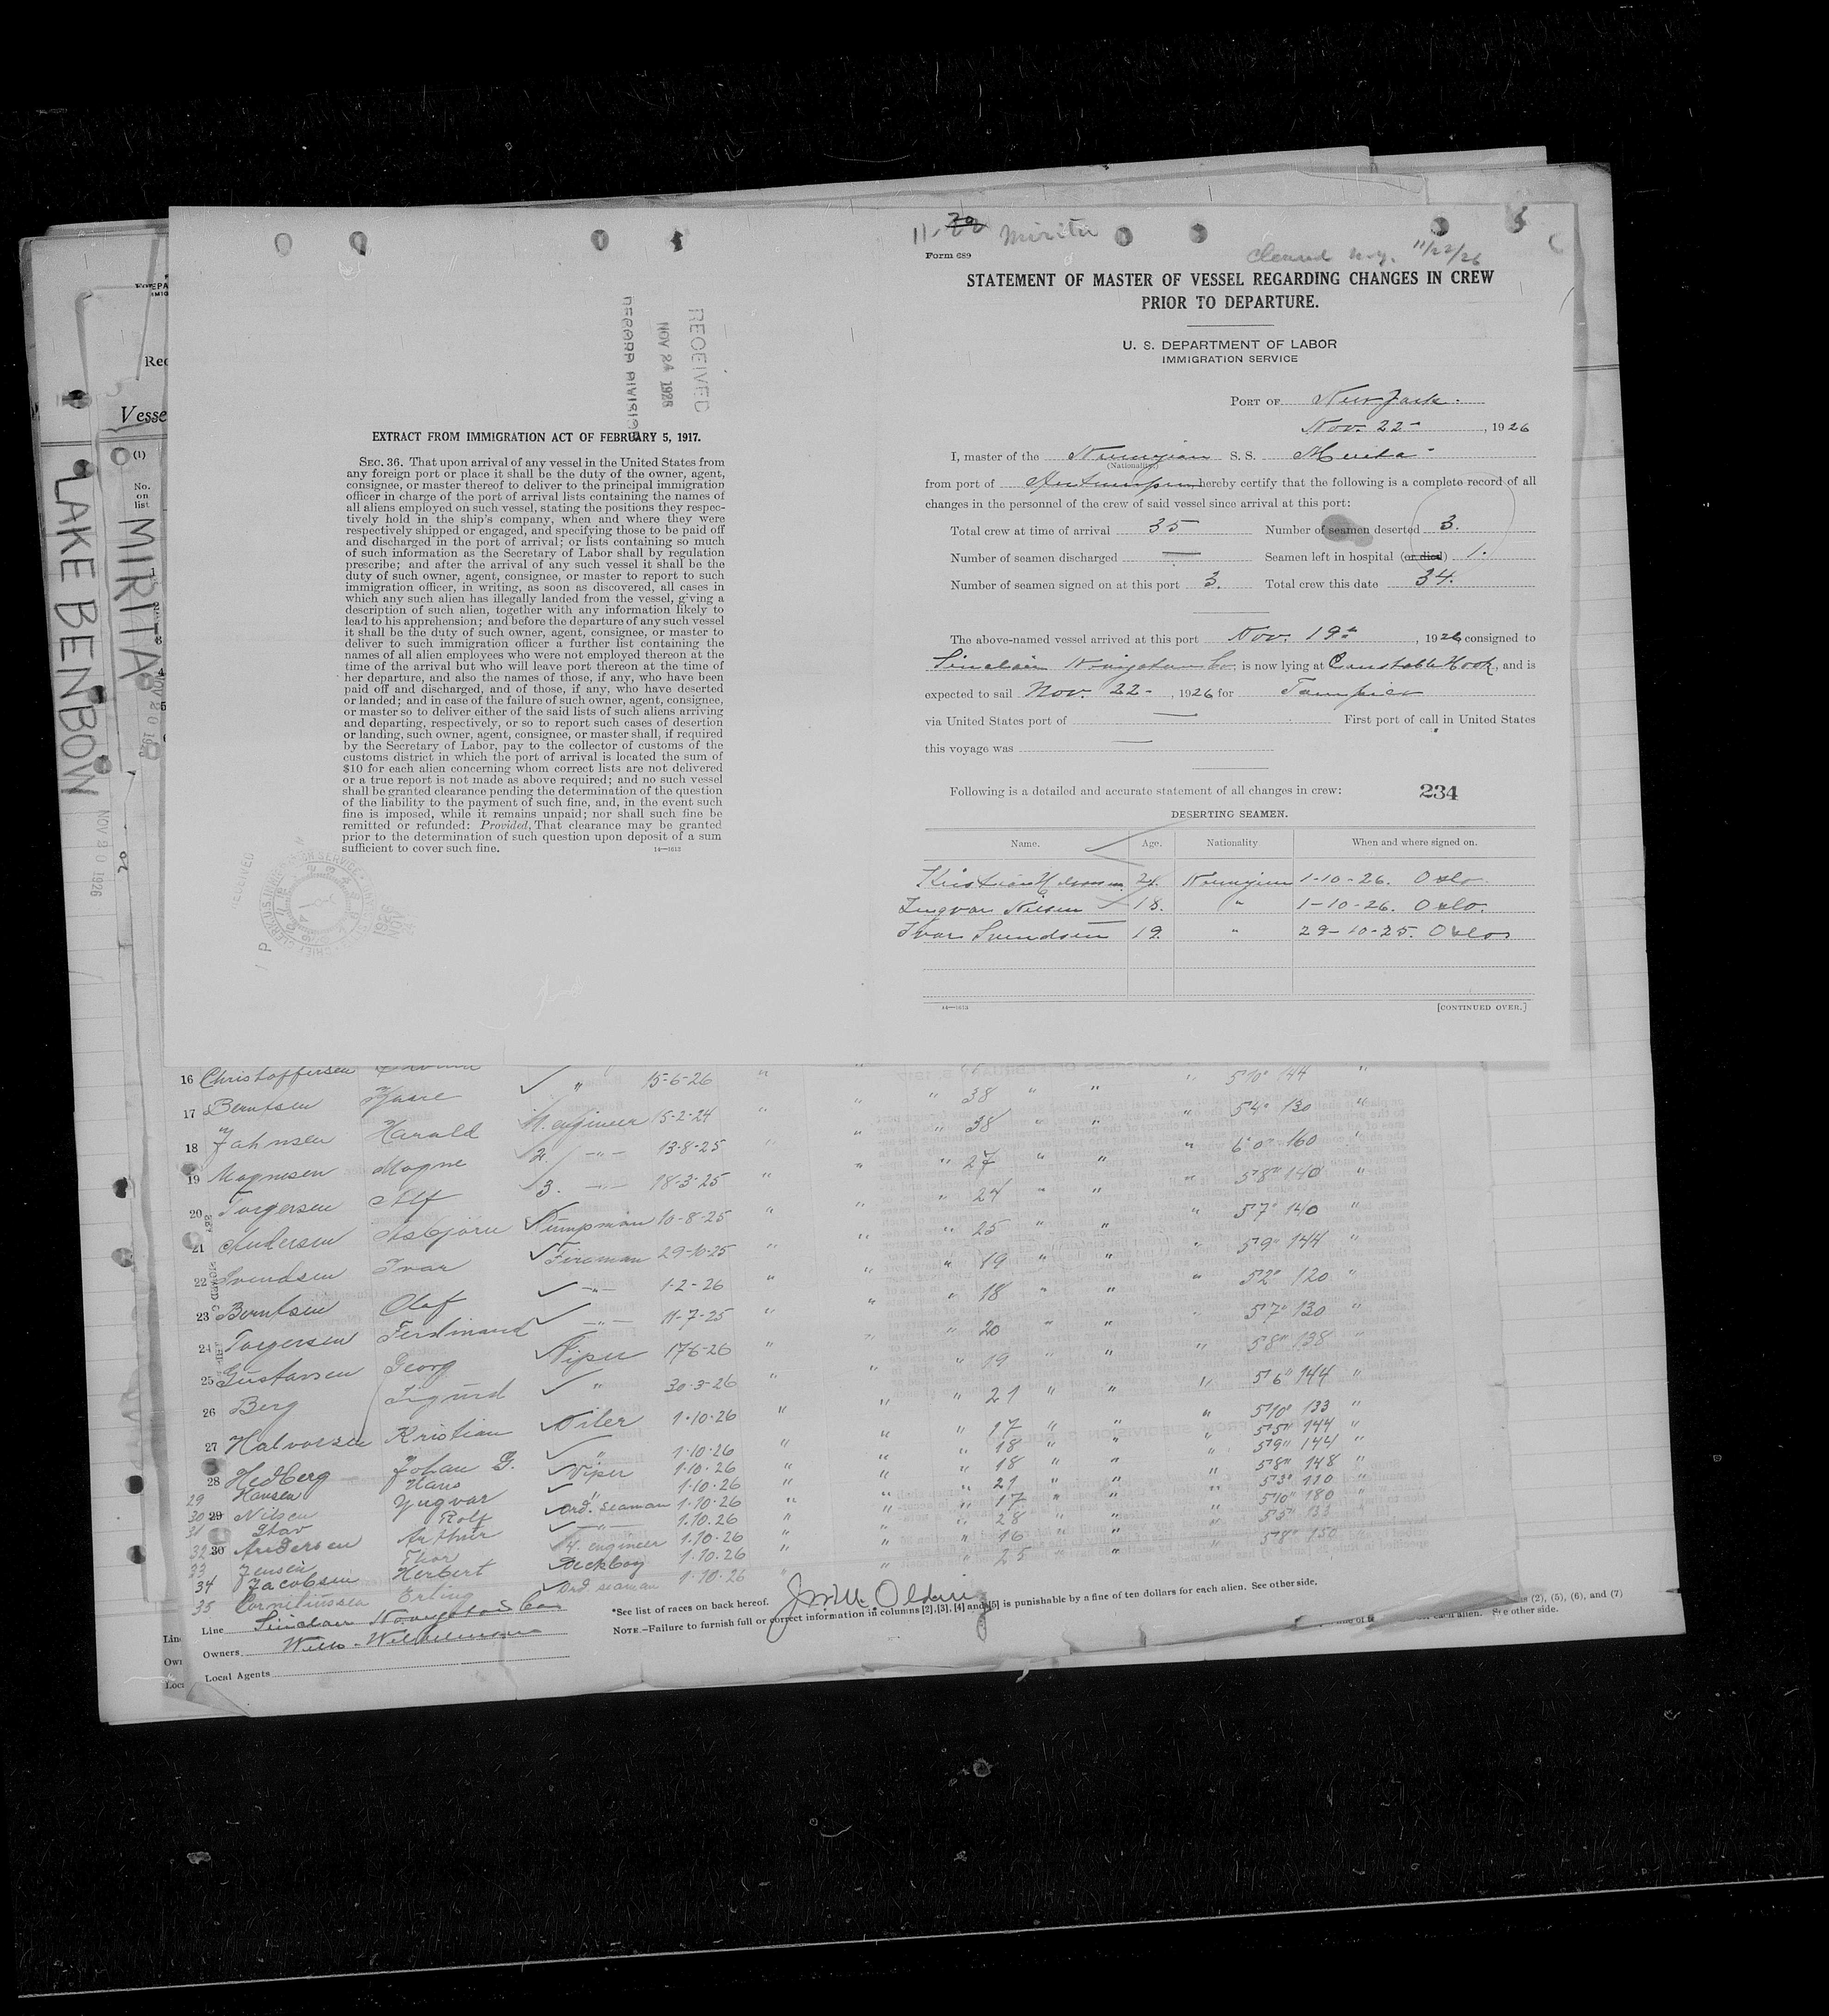 11-22 Mirita
Cleared N.Y. 11/22/26
Form 689
STATEMENT OF MASTER OF VESSEL REGARDING CHANGES IN CREW
PRIOR TO DEPARTURE.
U. S. DEPARTMENT OF LABOR
IMMIGRATION SERVICE
PORT OF New York.
Nov. 22 -, 1926
I, master of the Norwegian S. S. Mirita
(Nationality)
from port of hereby certify that the following is a complete record of all
changes in the personnel of the crew of said vessel since arrival at this port:
Total crew at time of arrival 35 Number of seamen deserted 3.
Number of seamen discharged — Seamen left in hospital (or died) 1.
Number of seamen signed on at this port 3. Total crew this date 34.
The above-named vessel arrived at this port Nov. 19th, 1926 consigned to
Sinclair Navigation Co, is now lying at Constable Hook, and is
expected to sail Nov. 22 -, 1926 for Tampico
via United States port of — First port of call in United States
this voyage was —
Following is a detailed and accurate statement of all changes in crew: 234
DESERTING SEAMEN.
Name. Age. Nationality When and where signed on.
Kristian 21. Norwegian 1-10-26. Oslo
Ingvar Nilsen 18. " 1-10-26. Oslo.
Ivar Svendsen 19. " 29-10-25. Oslo
14—1613 [CONTINUED OVER.]
RECEIVED
NOV 24 1926
EXTRACT FROM IMMIGRATION ACT OF FEBRUARY 5, 1917.
SEC. 36. That upon arrival of any vessel in the United States from
any foreign port or place it shall be the duty of the owner, agent,
consignee, or master thereof to deliver to the principal immigration
officer in charge of the port of arrival lists containing the names of
all aliens employed on such vessel, stating the positions they respec-
tively hold in the ship's company, when and where they were
respectively shipped or engaged, and specifying those to be paid off
and discharged in the port of arrival; or lists containing so much
of such information as the Secretary of Labor shall by regulation
prescribe; and after the arrival of any such vessel it shall be the
duty of such owner, agent, consignee, or master to report to such
immigration officer, in writing, as soon as discovered, all cases in
which any such alien has illegally landed from the vessel, giving a
description of such alien, together with any information likely to
lead to his apprehension; and before the departure of any such vessel
it shall be the duty of such owner, agent, consignee, or master to
deliver to such immigration officer a further list containing the
names of all alien employees who were not employed thereon at the
time of the arrival but who will leave port thereon at the time of
her departure, and also the names of those, if any, who have been
paid off and discharged, and of those, if any, who have deserted
or landed; and in case of the failure of such owner, agent, consignee,
or master so to deliver either of the said lists of such aliens arriving
and departing, respectively, or so to report such cases of desertion
or landing, such owner, agent, consignee, or master shall, if required
by the Secretary of Labor, pay to the collector of customs of the
customs district in which the port of arrival is located the sum of
$10 for each alien concerning whom correct lists are not delivered
or a true report is not made as above required; and no such vessel
shall be granted clearance pending the determination of the question
of the liability to the payment of such fine, and, in the event such
fine is imposed, while it remains unpaid; nor shall such fine be
remitted or refunded: Provided, That clearance may be granted
prior to the determination of such question upon deposit of a sum
sufficient to cover such fine. 14—1613
Vesse
(1)
No.
on
list
MIRITA
NOV 20 1926
LAKE BENBOW
NOV 30 1926
RECEIVED
16 Christoffersen " 15-6-26 " " " " " 5'10" 144 "
17 Berntsen Kaare M. engineer 15-2-24 " " " 38 " " " 5'4" 130 "
18 Jahnsen Harald 2. -"- 13-8-25 " " " 38 " " " 6'0" 160 "
19 Magnusen Magne 3. -"- 18-3-25 " " " 27 " " " 5'8" 140 "
20 Torgersen Alf Pumpman 10-8-25 " " " 24 " " " 5'7" 140 "
21 Andersen Asbjörn Fireman 29-10-25 " " " 25 " " " 5'9" 144 "
22 Svendsen Ivar -"- 1-2-26 " " " 19 " " " 5'2" 120 "
23 Berntsen Olaf -"- 11-7-25 " " " 18 " " " 5'7" 130 "
24 Torgersen Ferdinand Viper 17-6-26 " " " 20 " " " 5'8" 138 "
25 Gustavsen Georg " 30-3-26 " " " 19 " " " 5'6" 144 "
26 Berg Sigurd Oiler 1-10-26 " " " 21 " " " 5'10" 133 "
27 Halvorsen Kristian " 1-10-26 " " " 17 " " " 5'5" 144 "
28 Hedberg Johan G. Viper 1-10-26 " " " 18 " " " 5'9" 144 "
29 Hansen Hans " 1-10-26 " " " 18 " " " 5'8" 148 "
30 29 Nilsen Yngvar Ord. Seaman 1-10-26 " " " 21 " " " 5'3" 110 "
31 Stav Rolf -"- 1.10.26 " " " 17 " " " 5'10" 180 "
32 30 Andersen Arthur 4. engineer 1.10-26 " " " 28 " " " 5'5" 133
33 Jensen Thor Deckboy 1.10-26 " " " 16 " " " 5'8" 150
34 Jacobsen Herbert Ord seaman 1-10-26 " " 25 " "
35 Corneliussen Erling
Line Sinclair Navigation Co
Owners Wilh. Wilhelmsen
Local Agents
*See list of races on back hereof.
NOTE.—Failure to furnish full or correct information in columns [2], [3], [4] and [5] is punishable by a fine of ten dollars for each alien. See other side.
(2), (5), (6), and (7)
each alien. See other side.